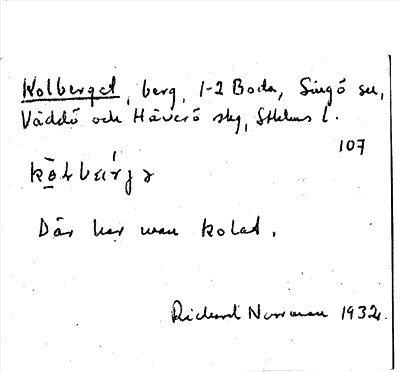 Kolberget, berg, 1-2 Boda, Singö sn,
Väddö och Häverö skg, Sthlms l.
107
Där har man kolat.
Richard Norrman 1932.